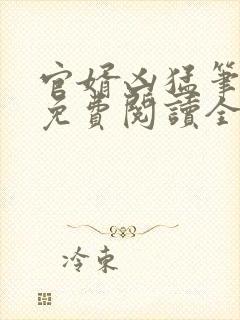 官婿凶猛筆
免費閱讀全
冷東